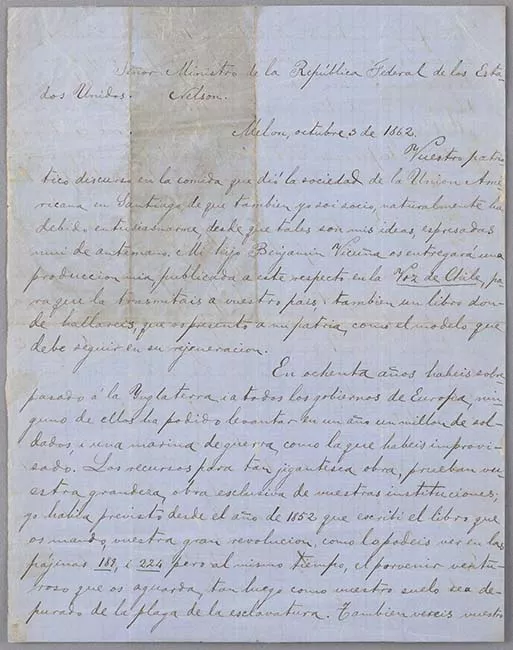 Señor Ministro de la República Federal de los Esta-
dos Unidos. Nelson.
Melon, octubre 3 de 1862.
Vuestro patrió
tico discurso en la comida que dió la sociedad de la Union Ame
ricana en Santiago de que tambien yo soi socio, naturalmente ha
debido entusiasmarme, desde que tales son mis ideas, espresadas
mui de antemano. Mi hijo Benjamin Vicuña os entregará una
produccion mia, publicada a este respecto en la Voz de Chile, pa
ra que la trasmitais a vuestro pais; tambien un libro don-
de hallareis, que os presento a mi patria, como el modelo que
debe seguir en su rejeneracion.
En ochenta años habeis sobre
pasado á la Ynglaterra i a todos los gobiernos de Europa, nin
guno de ellos ha podido levantar en un año un millon de sol-
dados, i una marina de guerra, como la que habeis improvi-
sado. Los recursos para tan jigantesca obra, prueban vu
estra grandeza, obra esclusiva de vuestras instituciones;
yo habia previsto desde el año de 1852 que escribi el libro que
os mando, vuestra gran revolucion, como lo podeis ver en las
pájinas 189, i 224 pero al mismo tiempo, el porvenir ventu-
roso que os aguarda, tan luego como vuestro suelo sea de-
purado de la plaga de la esclavatura. Tambien vereis vuestro